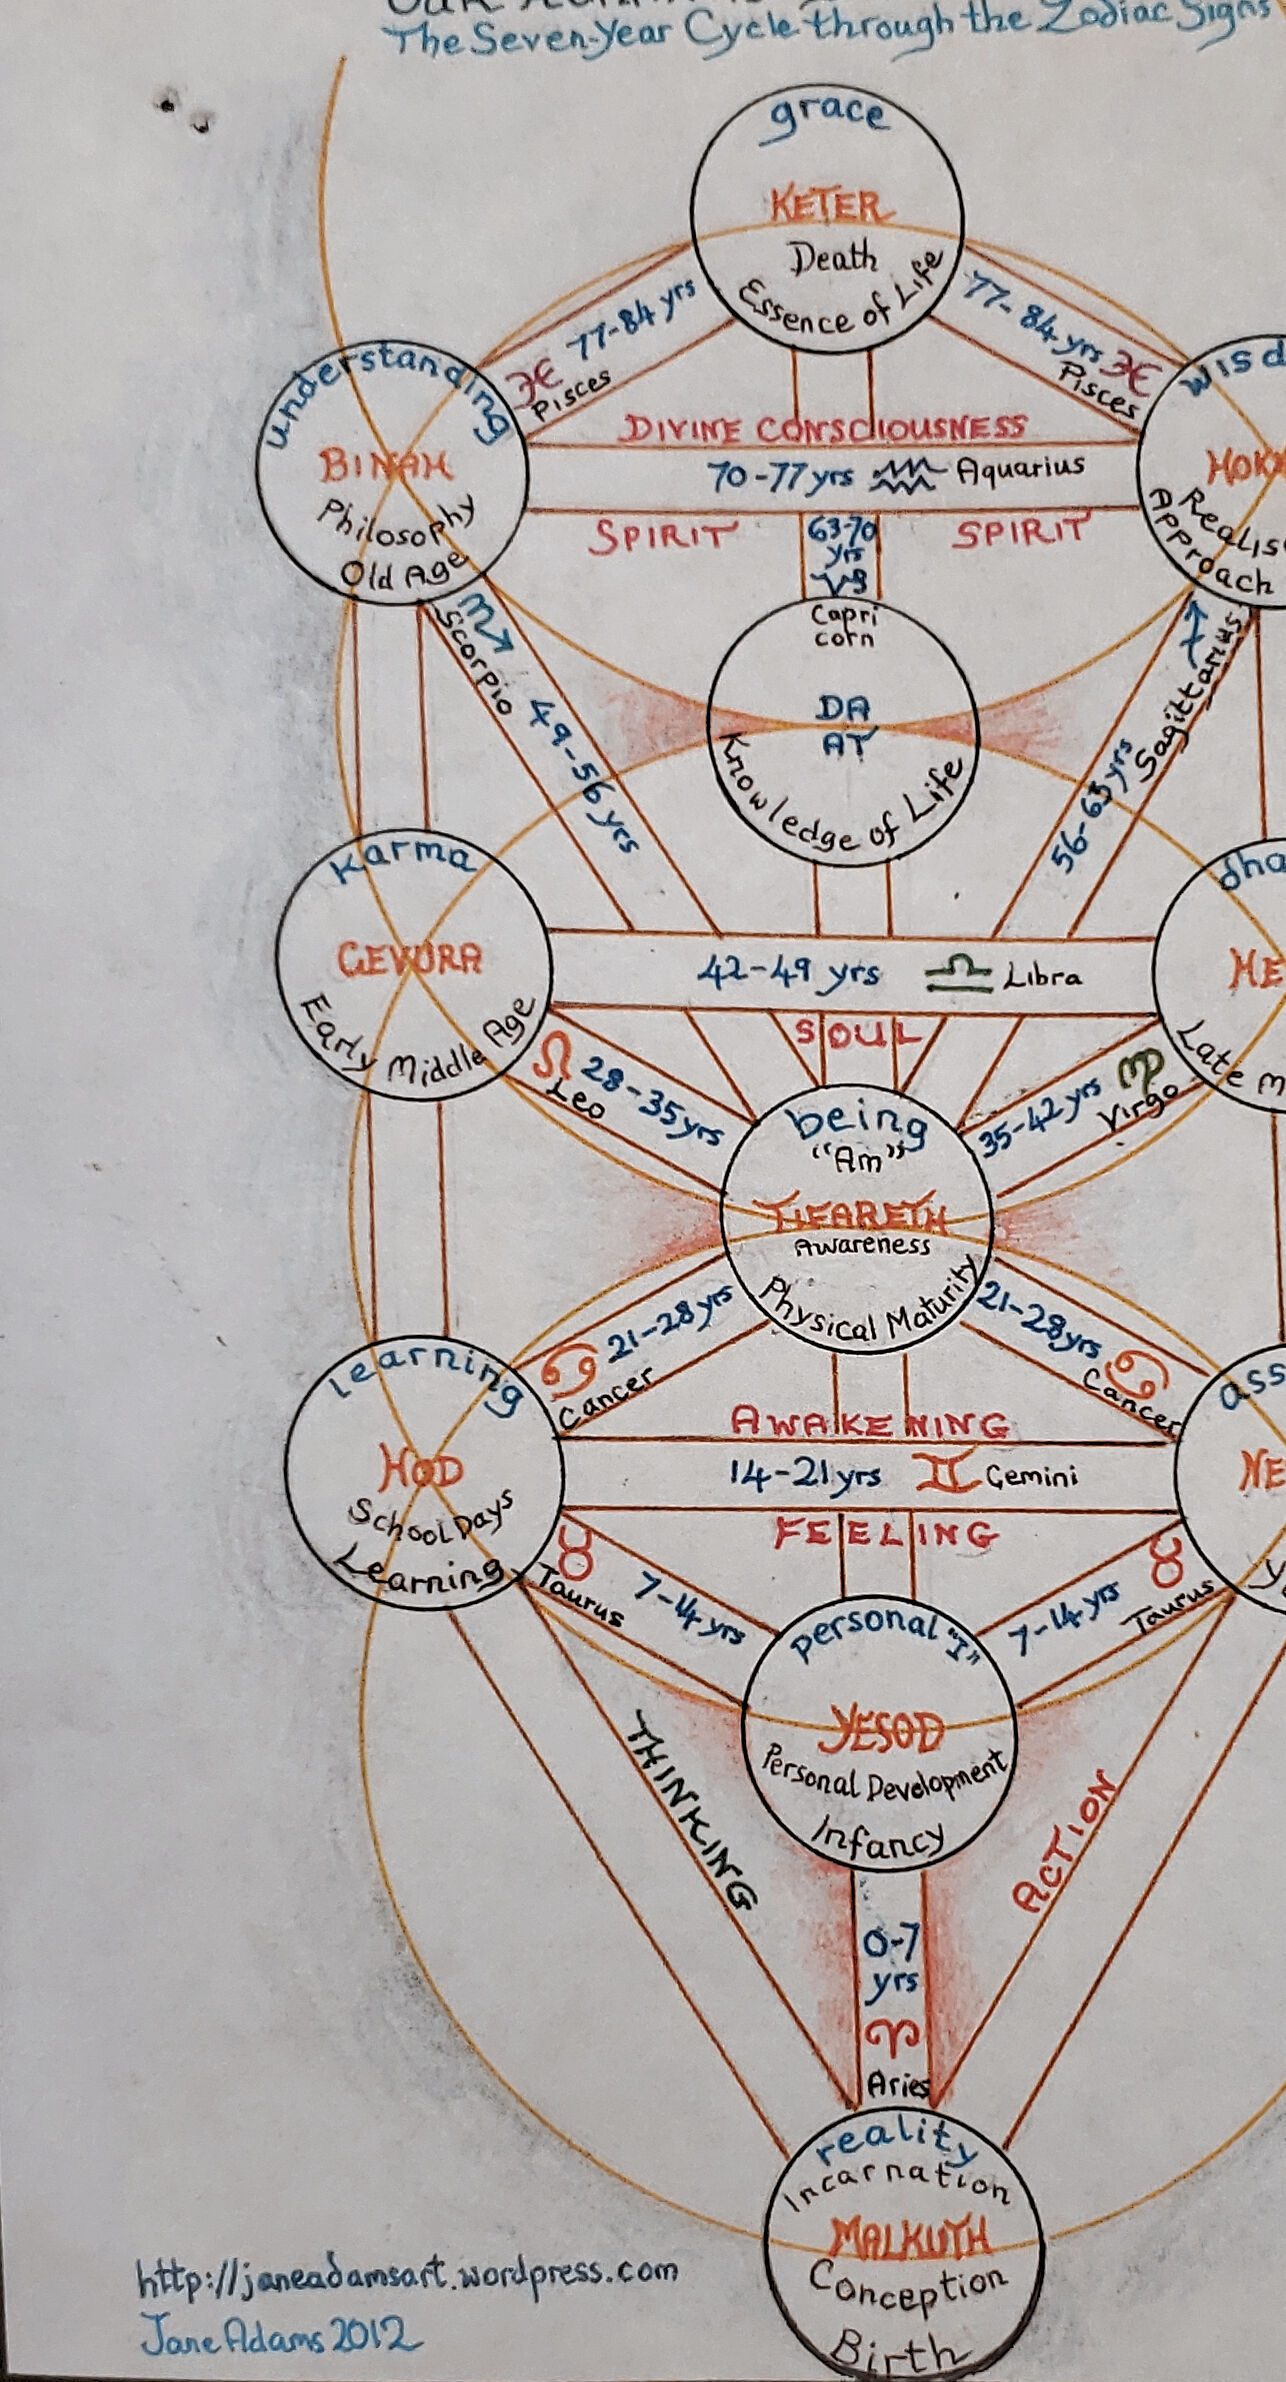 The Seven-Year Cycle through the Zodiac Signs
grace
KETER
Death
Essence of Life
77-84 yrs
Pisces
77-84 yrs
Pisces
understanding
BINAH
Philosophy
Old Age
DIVINE CONSCIOUSNESS
70-77yrs ♒ Aquarius
SPIRIT
SPIRIT
63-70
yrs
♑
Capri
corn
wisd
HOK
Realis
Approach
♏
Scorpio
49-56 yrs
DA
AT
Knowledge of Life
♐
Sagittarius
56-63yrs
karma
GEVURA
Early Middle Age
42-49 yrs ♎ Libra
SOUL
dha
HE
Late m
♌ 28-35yrs
Leo
35-42yrs ♍
Virgo
being
"Am"
TIFARETH
Awareness
Physical Maturity
♋ 21-28yrs
Cancer
21-28yrs ♋
Cancer
learning
HOD
School Days
Learning
AWAKENING
14-21yrs ♊ Gemini
FEELING
ass
NE
♉
Taurus
7-14yrs
7-14yrs
♉
Taurus
personal "I"
YESOD
Personal Development
Infancy
THINKING
ACTION
0-7
yrs
♈
Aries
reality
Incarnation
MALKUTH
Conception
Birth
http://janeadamsart.wordpress.com
Jane Adams 2012